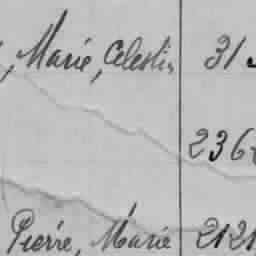 , Marie, Celestin 31
236
Pierre, Marie 2121